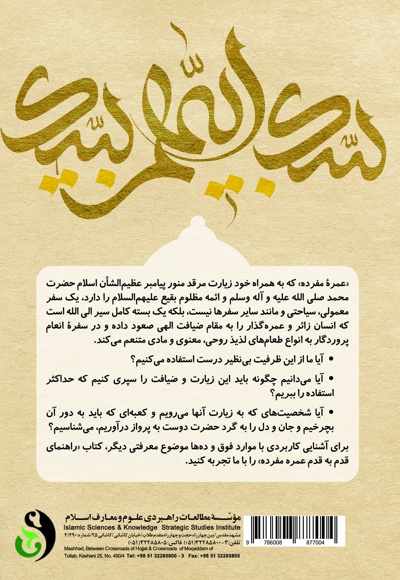 لبیک اللهم لبیک
«عمرهٔ مفرده» که به همراه خود زیارت مرقد منور پیامبر عظیم‌الشأن اسلام حضرت
محمد صلی الله علیه و آله وسلم و ائمه مظلوم بقیع علیهم‌السلام را دارد، یک سفر
معمولی، سیاحتی و مانند سایر سفرها نیست، بلکه یک بسته کامل سیر الی الله است
که انسان زائر و عمره‌گذار را به مقام ضیافت الهی صعود داده و در سفرهٔ انعام
پروردگار به انواع طعام‌های لذیذ روحی، معنوی و مادی متنعم می‌کند.
• آیا ما از این ظرفیت بی‌نظیر درست استفاده می‌کنیم؟
• آیا می‌دانیم چگونه باید این زیارت و ضیافت را سپری کنیم که حداکثر
استفاده را ببریم؟
• آیا شخصیت‌های که به زیارت آنها می‌رویم و کعبه‌ای که باید به دور آن
بچرخیم و جان و دل را به گرد حضرت دوست به پرواز درآوریم، می‌شناسیم؟
برای آشنایی کاربردی با موارد فوق و ده‌ها موضوع معرفتی دیگر، کتاب «راهنمای
قدم به قدم عمره مفرده» را با ما تجربه کنید.
مؤسسهٔ مطالعات راهبردی علوم و معارف اسلام
Islamic Sciences & Knowledge Strategic Studies Institute
Mashhad, Between Crossroads of Hojjat & Crossroads of Moqaddam of
Tollab, Kashani 25, No. 49/04 Tel: +98 51 32285800 - 3 Fax: +98 51 32285805
9 786008 877004